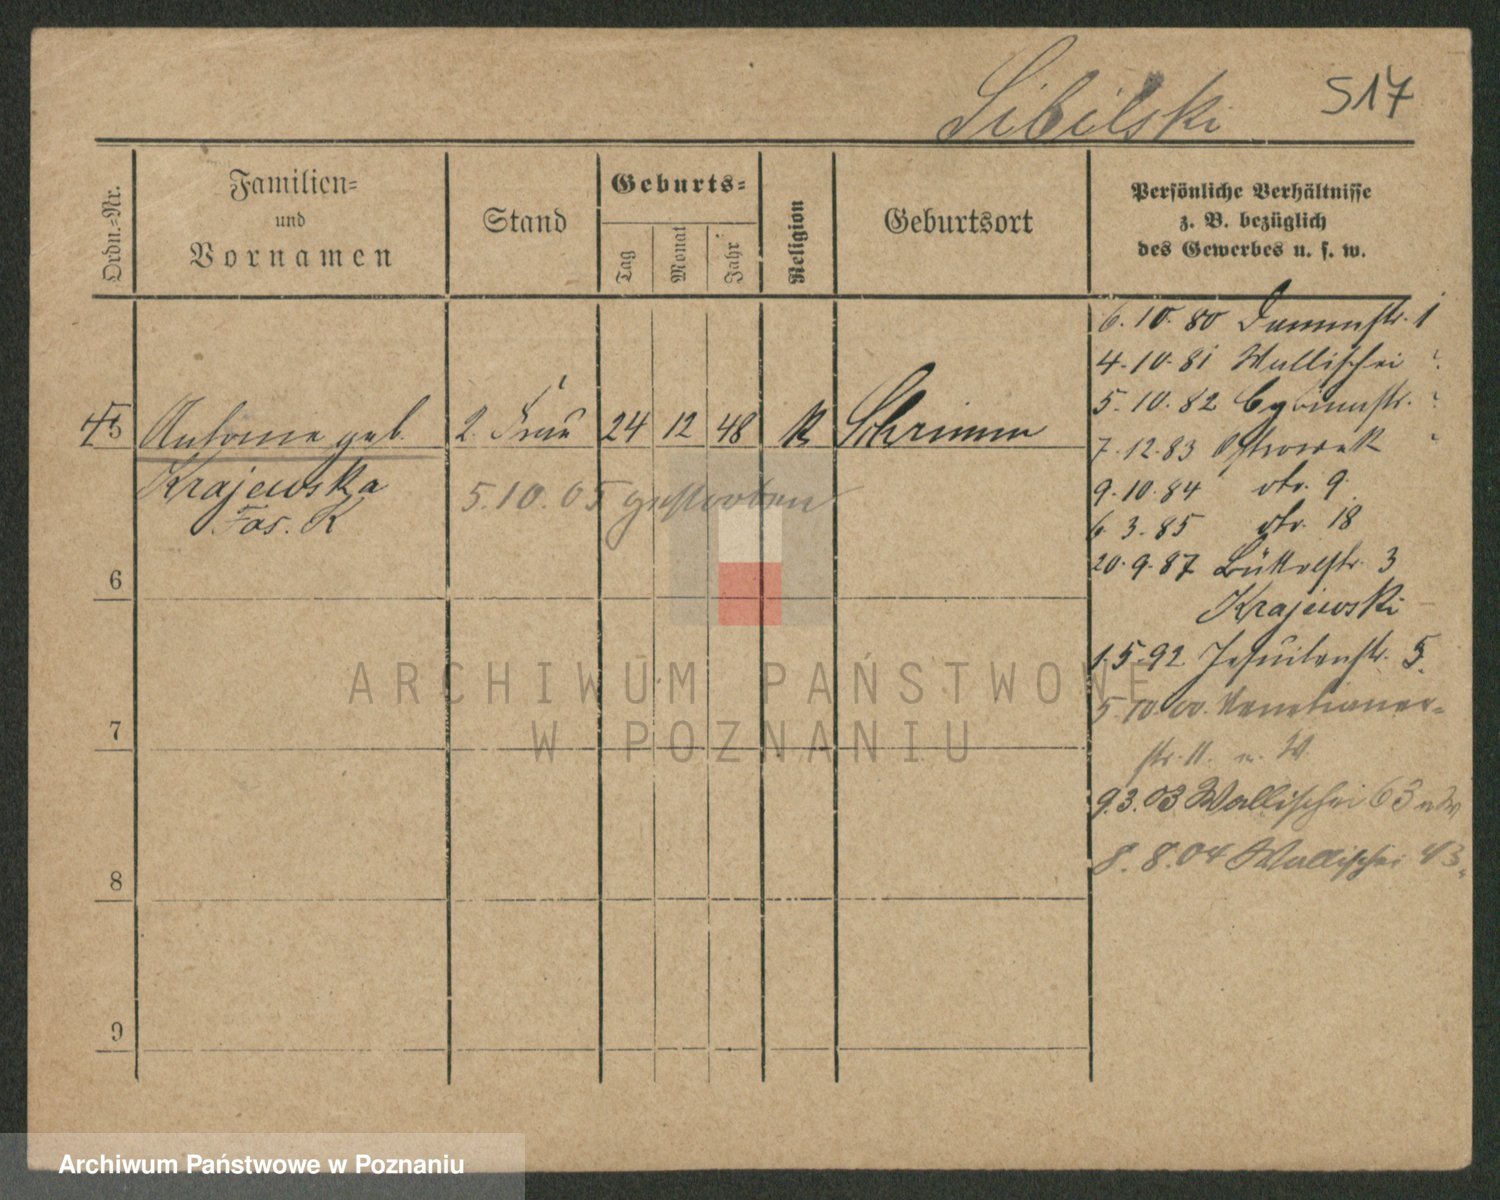 Sibilski
S17
Ordn.-Nr.
Familien-
und
Vornamen
Stand
Geburts-
Tag
Monat
Jahr
Religion
Geburtsort
Persönliche Verhältnisse
z. B. bezüglich
des Gewerbes u. s. w.
6. 10. 80 Dammstr. 1
4. 10. 81 Wallischei
5. 10. 82
7. 12. 83 Ostrowek
9. 10. 84 dto. 9
6. 3. 85 dto. 18
20. 9. 87 Büttelstr. 3
Krajewski
1. 5. 92 Jesuitenstr. 5.
5. 10. 00. Venetianer-
str. 11.
9. 3. 03 Wallischei 63
8. 8. 04 Wallischei 43
5 Antonie geb. 2. Frau 24 12 48 K Schrimm
Krajewska
5. 10. 05 gestorben
6
7
8
9
ARCHIWUM PAŃSTWOWE
W POZNANIU
Archiwum Państwowe w Poznaniu